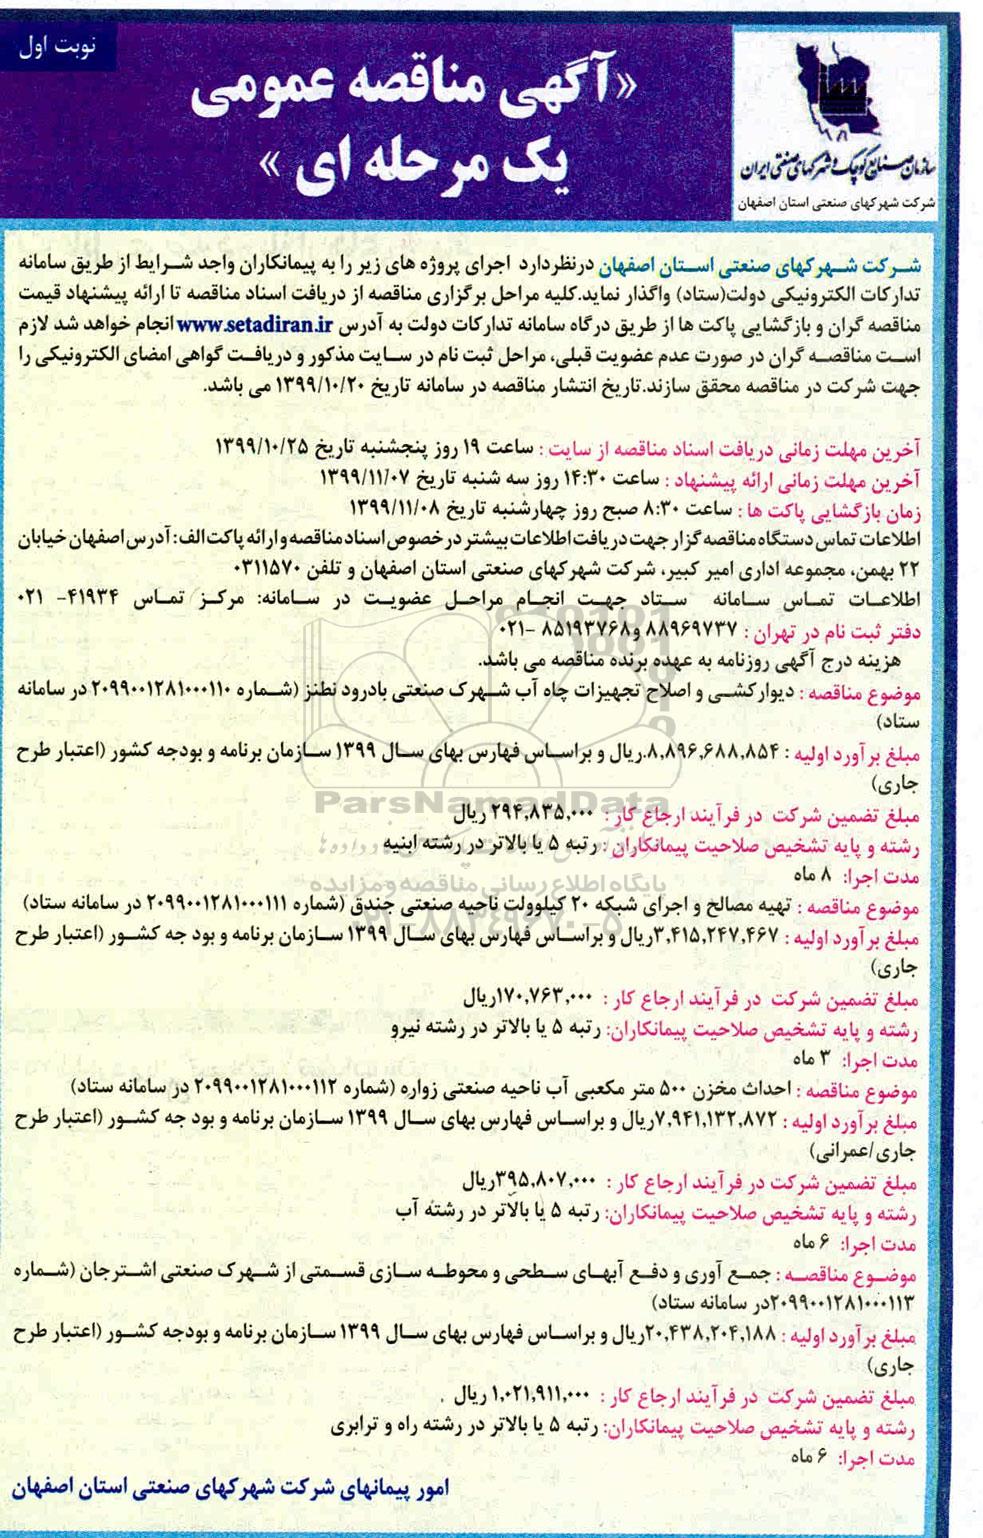 نوبت اول
«آگهی مناقصه عمومی
یک مرحله ای »
سازمان صنایع کوچک و شهرکهای صنعتی ایران
شرکت شهرکهای صنعتی استان اصفهان
شرکت شهرکهای صنعتی استان اصفهان درنظردارد اجرای پروژه های زیر را به پیمانکاران واجد شرایط از طریق سامانه
تدارکات الکترونیکی دولت(ستاد) واگذار نماید.کلیه مراحل برگزاری مناقصه از دریافت اسناد مناقصه تا ارائه پیشنهاد قیمت
مناقصه گران و بازگشایی پاکت ها از طریق درگاه سامانه تدارکات دولت به آدرس www.setadiran.ir انجام خواهد شد لازم
است مناقصه گران در صورت عدم عضویت قبلی، مراحل ثبت نام در سایت مذکور و دریافت گواهی امضای الکترونیکی را
جهت شرکت در مناقصه محقق سازند.تاریخ انتشار مناقصه در سامانه تاریخ ۱۳۹۹/۱۰/۲۰ می باشد.
آخرین مهلت زمانی دریافت اسناد مناقصه از سایت : ساعت ۱۹ روز پنجشنبه تاریخ ۱۳۹۹/۱۰/۲۵
آخرین مهلت زمانی ارائه پیشنهاد : ساعت ۱۴:۳۰ روز سه شنبه تاریخ ۱۳۹۹/۱۱/۰۷
زمان بازگشایی پاکت ها : ساعت ۸:۳۰ صبح روز چهارشنبه تاریخ ۱۳۹۹/۱۱/۰۸
اطلاعات تماس دستگاه مناقصه گزار جهت دریافت اطلاعات بیشتر در خصوص اسناد مناقصه و ارائه پاکت الف: آدرس اصفهان خیابان
۲۲ بهمن، مجموعه اداری امیر کبیر، شرکت شهرکهای صنعتی استان اصفهان و تلفن ۰۳۱۱۵۷۰
اطلاعات تماس سامانه ستاد جهت انجام مراحل عضویت در سامانه: مرکز تماس ۴۱۹۳۴- ۰۲۱
دفتر ثبت نام در تهران : ۸۸۹۶۹۷۳۷ و ۸۵۱۹۳۷۶۸ -۰۲۱
هزینه درج آگهی روزنامه به عهده برنده مناقصه می باشد.
موضوع مناقصه : دیوارکشی و اصلاح تجهیزات چاه آب شهرک صنعتی بادرود نطنز (شماره ۲۰۹۹۰۰۱۲۸۱۰۰۰۱۱۰ در سامانه
ستاد)
مبلغ برآورد اولیه : ۸,۸۹۶,۶۸۸,۸۵۴.ریال و براساس فهارس بهای سال ۱۳۹۹ سازمان برنامه و بودجه کشور (اعتبار طرح
جاری)
ParsNamadData
مبلغ تضمین شرکت در فرآیند ارجاع کار : ۲۹۴,۸۳۵,۰۰۰ ریال
رشته و پایه تشخیص صلاحیت پیمانکاران : رتبه ۵ یا بالاتر در رشته ابنیه
مدت اجرا: ۸ ماه
پایگاه اطلاع رسانی مناقصه و مزایده
موضوع مناقصه : تهیه مصالح و اجرای شبکه ۲۰ کیلوولت ناحیه صنعتی جندق (شماره ۲۰۹۹۰۰۱۲۸۱۰۰۰۱۱۱ در سامانه ستاد)
مبلغ برآورد اولیه : ۳,۴۱۵,۲۴۷,۴۶۷ریال و براساس فهارس بهای سال ۱۳۹۹ سازمان برنامه و بود جه کشور (اعتبار طرح
جاری)
مبلغ تضمین شرکت در فرآیند ارجاع کار : ۱۷۰,۷۶۳,۰۰۰ریال
رشته و پایه تشخیص صلاحیت پیمانکاران: رتبه ۵ یا بالاتر در رشته نیرو
مدت اجرا: ۳ ماه
موضوع مناقصه : احداث مخزن ۵۰۰ متر مکعبی آب ناحیه صنعتی زواره (شماره ۲۰۹۹۰۰۱۲۸۱۰۰۰۱۱۲ در سامانه ستاد)
مبلغ برآورد اولیه : ۷,۹۴۱,۱۳۲,۸۷۲ریال و براساس فهارس بهای سال ۱۳۹۹ سازمان برنامه و بود جه کشور (اعتبار طرح
جاری/عمرانی)
مبلغ تضمین شرکت در فرآیند ارجاع کار : ۳۹۵,۸۰۷,۰۰۰ریال
رشته و پایه تشخیص صلاحیت پیمانکاران: رتبه ۵ یا بالاتر در رشته آب
مدت اجرا: ۶ ماه
موضوع مناقصه : جمع آوری و دفع آبهای سطحی و محوطه سازی قسمتی از شهرک صنعتی اشترجان (شماره
۲۰۹۹۰۰۱۲۸۱۰۰۰۱۱۳در سامانه ستاد)
مبلغ برآورد اولیه : ۲۰,۴۳۸,۲۰۴,۱۸۸ریال و براساس فهارس بهای سال ۱۳۹۹ سازمان برنامه و بودجه کشور (اعتبار طرح
جاری)
مبلغ تضمین شرکت در فرآیند ارجاع کار : ۱,۰۲۱,۹۱۱,۰۰۰ ریال .
رشته و پایه تشخیص صلاحیت پیمانکاران: رتبه ۵ یا بالاتر در رشته راه و ترابری
مدت اجرا: ۶ ماه
امور پیمانهای شرکت شهرکهای صنعتی استان اصفهان